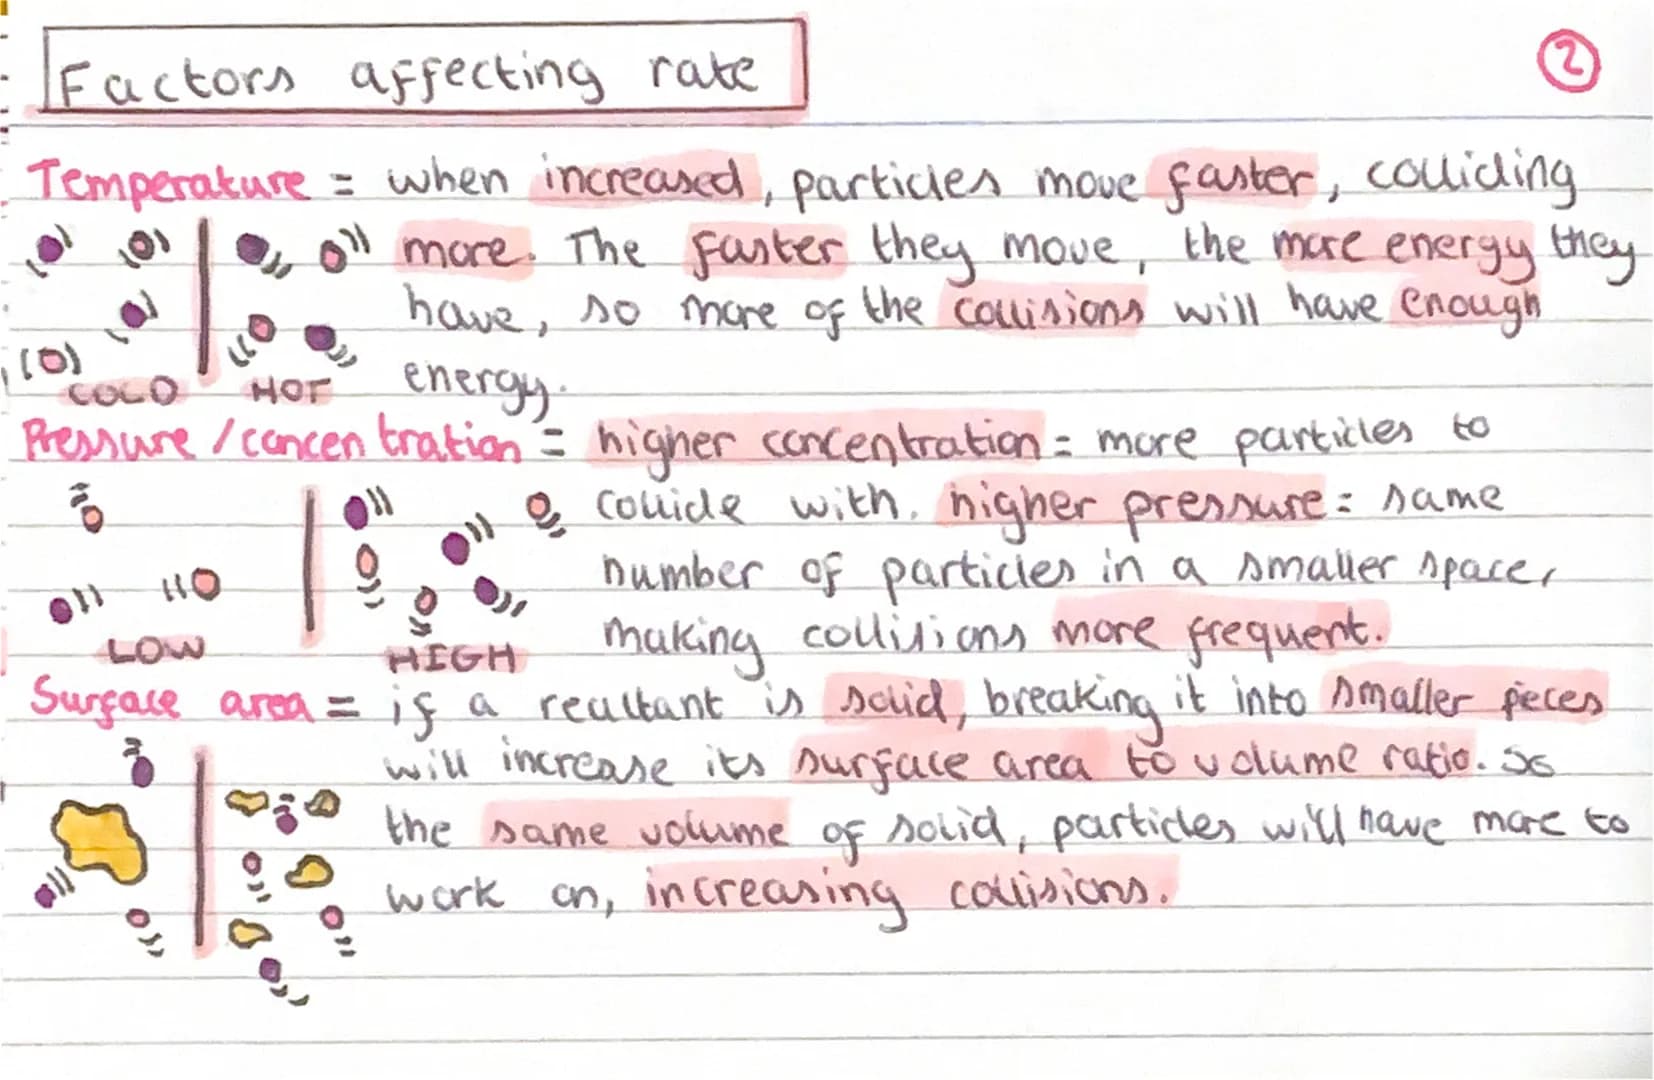 Factors affecting rate
2
Temperature = when increased, particles move faster, colliding
more. The faster they move, the more energy they
have, so more of the collisions will have enough
energy.
COLD HOT
Pressure / concentration = higher concentration = more particles to
collide with. higher pressure = same
number of particles in a smaller space,
making collisions more frequent.
LOW HIGH
Surface area = if a reactant is solid, breaking it into smaller pieces
will increase its surface area to volume ratio. So
the same volume of solid, particles will have more to
work on, increasing collisions.